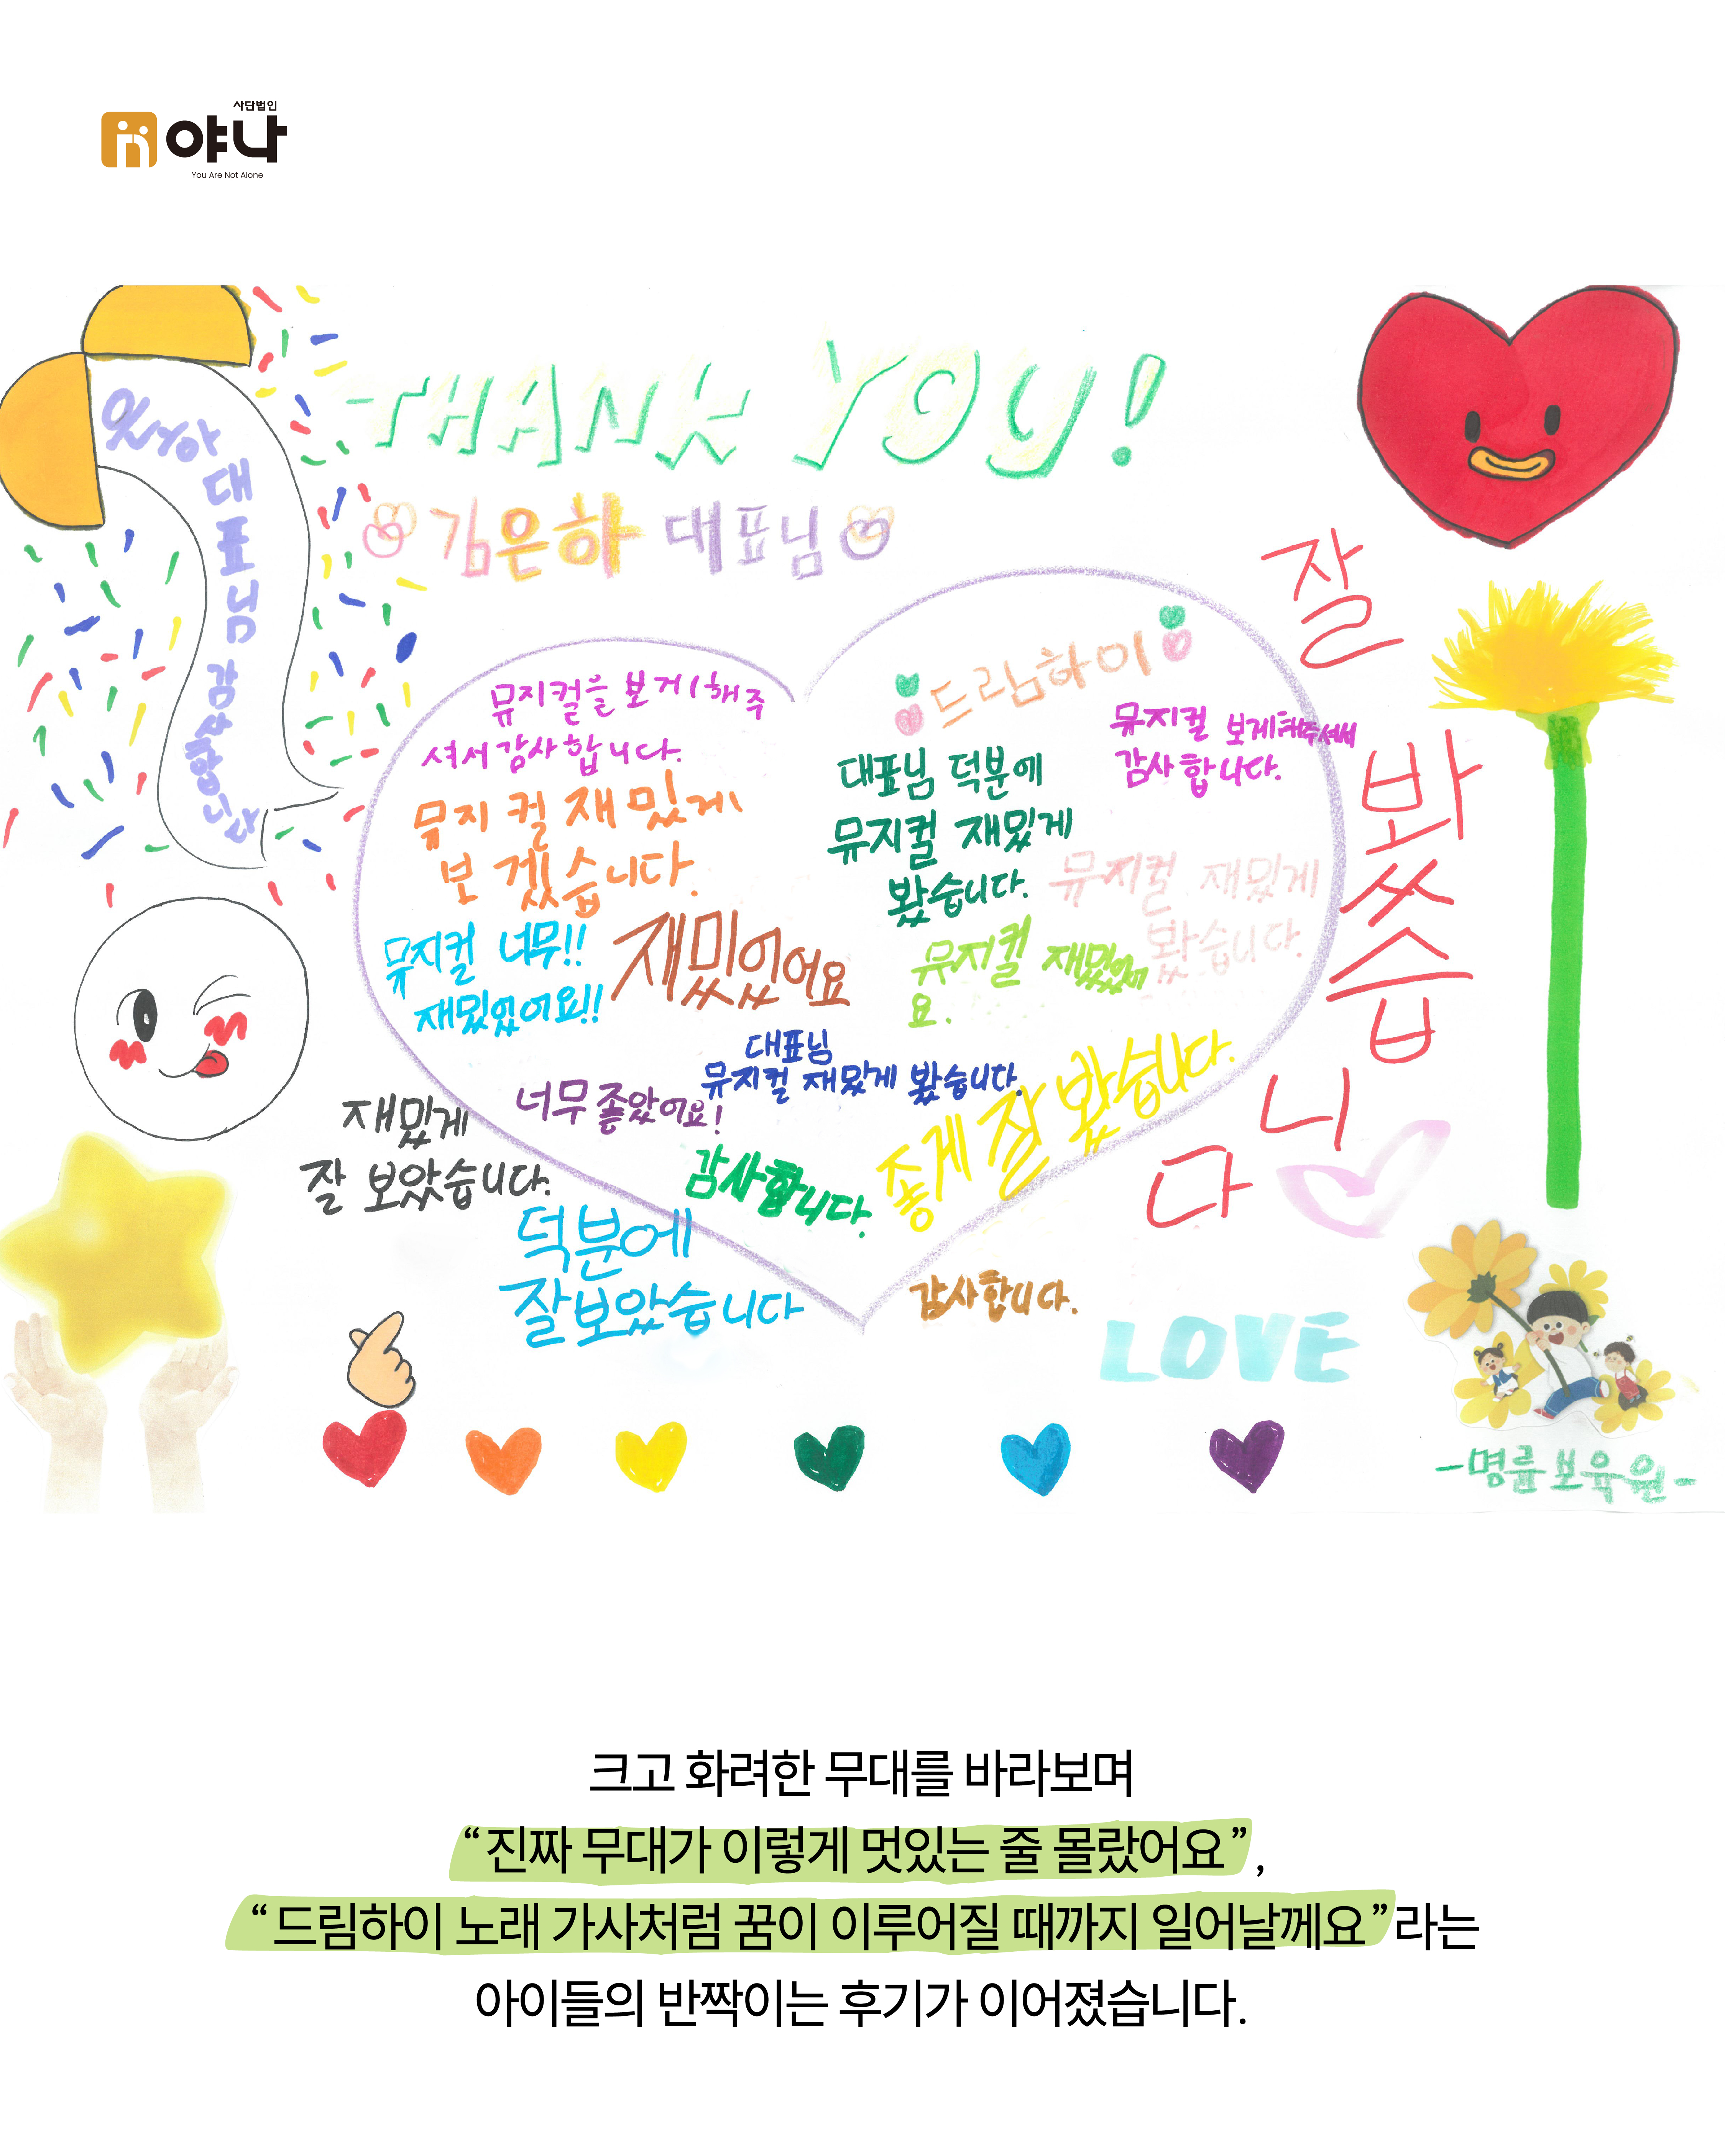 사단법인
야나
You Are Not Alone
THANK YOU!
김은하 대표님
대표님 감사합니다
드림하이
뮤지컬을 보게해주
셔서 감사합니다.
뮤지컬 재밌게
보겠습니다.
뮤지컬 너무!!
재밌었어요!!
재밌었어요
대표님 덕분에
뮤지컬 재밌게
봤습니다.
뮤지컬 보게해주셔서
감사합니다.
뮤지컬 재밌게
봤습니다.
뮤지컬 재밌었어
요.
대표님
뮤지컬 재밌게 봤습니다.
너무 좋았어요!
좋게 잘 봤습니다.
감사합니다.
재밌게
잘 보았습니다.
덕분에
잘보았습니다
감사합니다.
잘
봐
ㅆ
습
니
다
LOVE
-명륜보육원-
크고 화려한 무대를 바라보며
“진짜 무대가 이렇게 멋있는 줄 몰랐어요”,
“드림하이 노래 가사처럼 꿈이 이루어질 때까지 일어날께요”라는
아이들의 반짝이는 후기가 이어졌습니다.